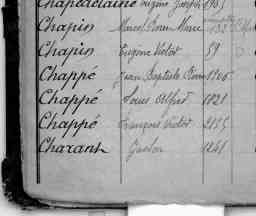 Chapdelaine Eugène Joseph 1903
Chapin Marcel Pierre Marie
Chapin Eugène Victor 59
Chappé Jean Baptiste Pierre 1906
Chappé Louis Alfred 1821
Chappé François Victor 2155
Charant Gaston 1841